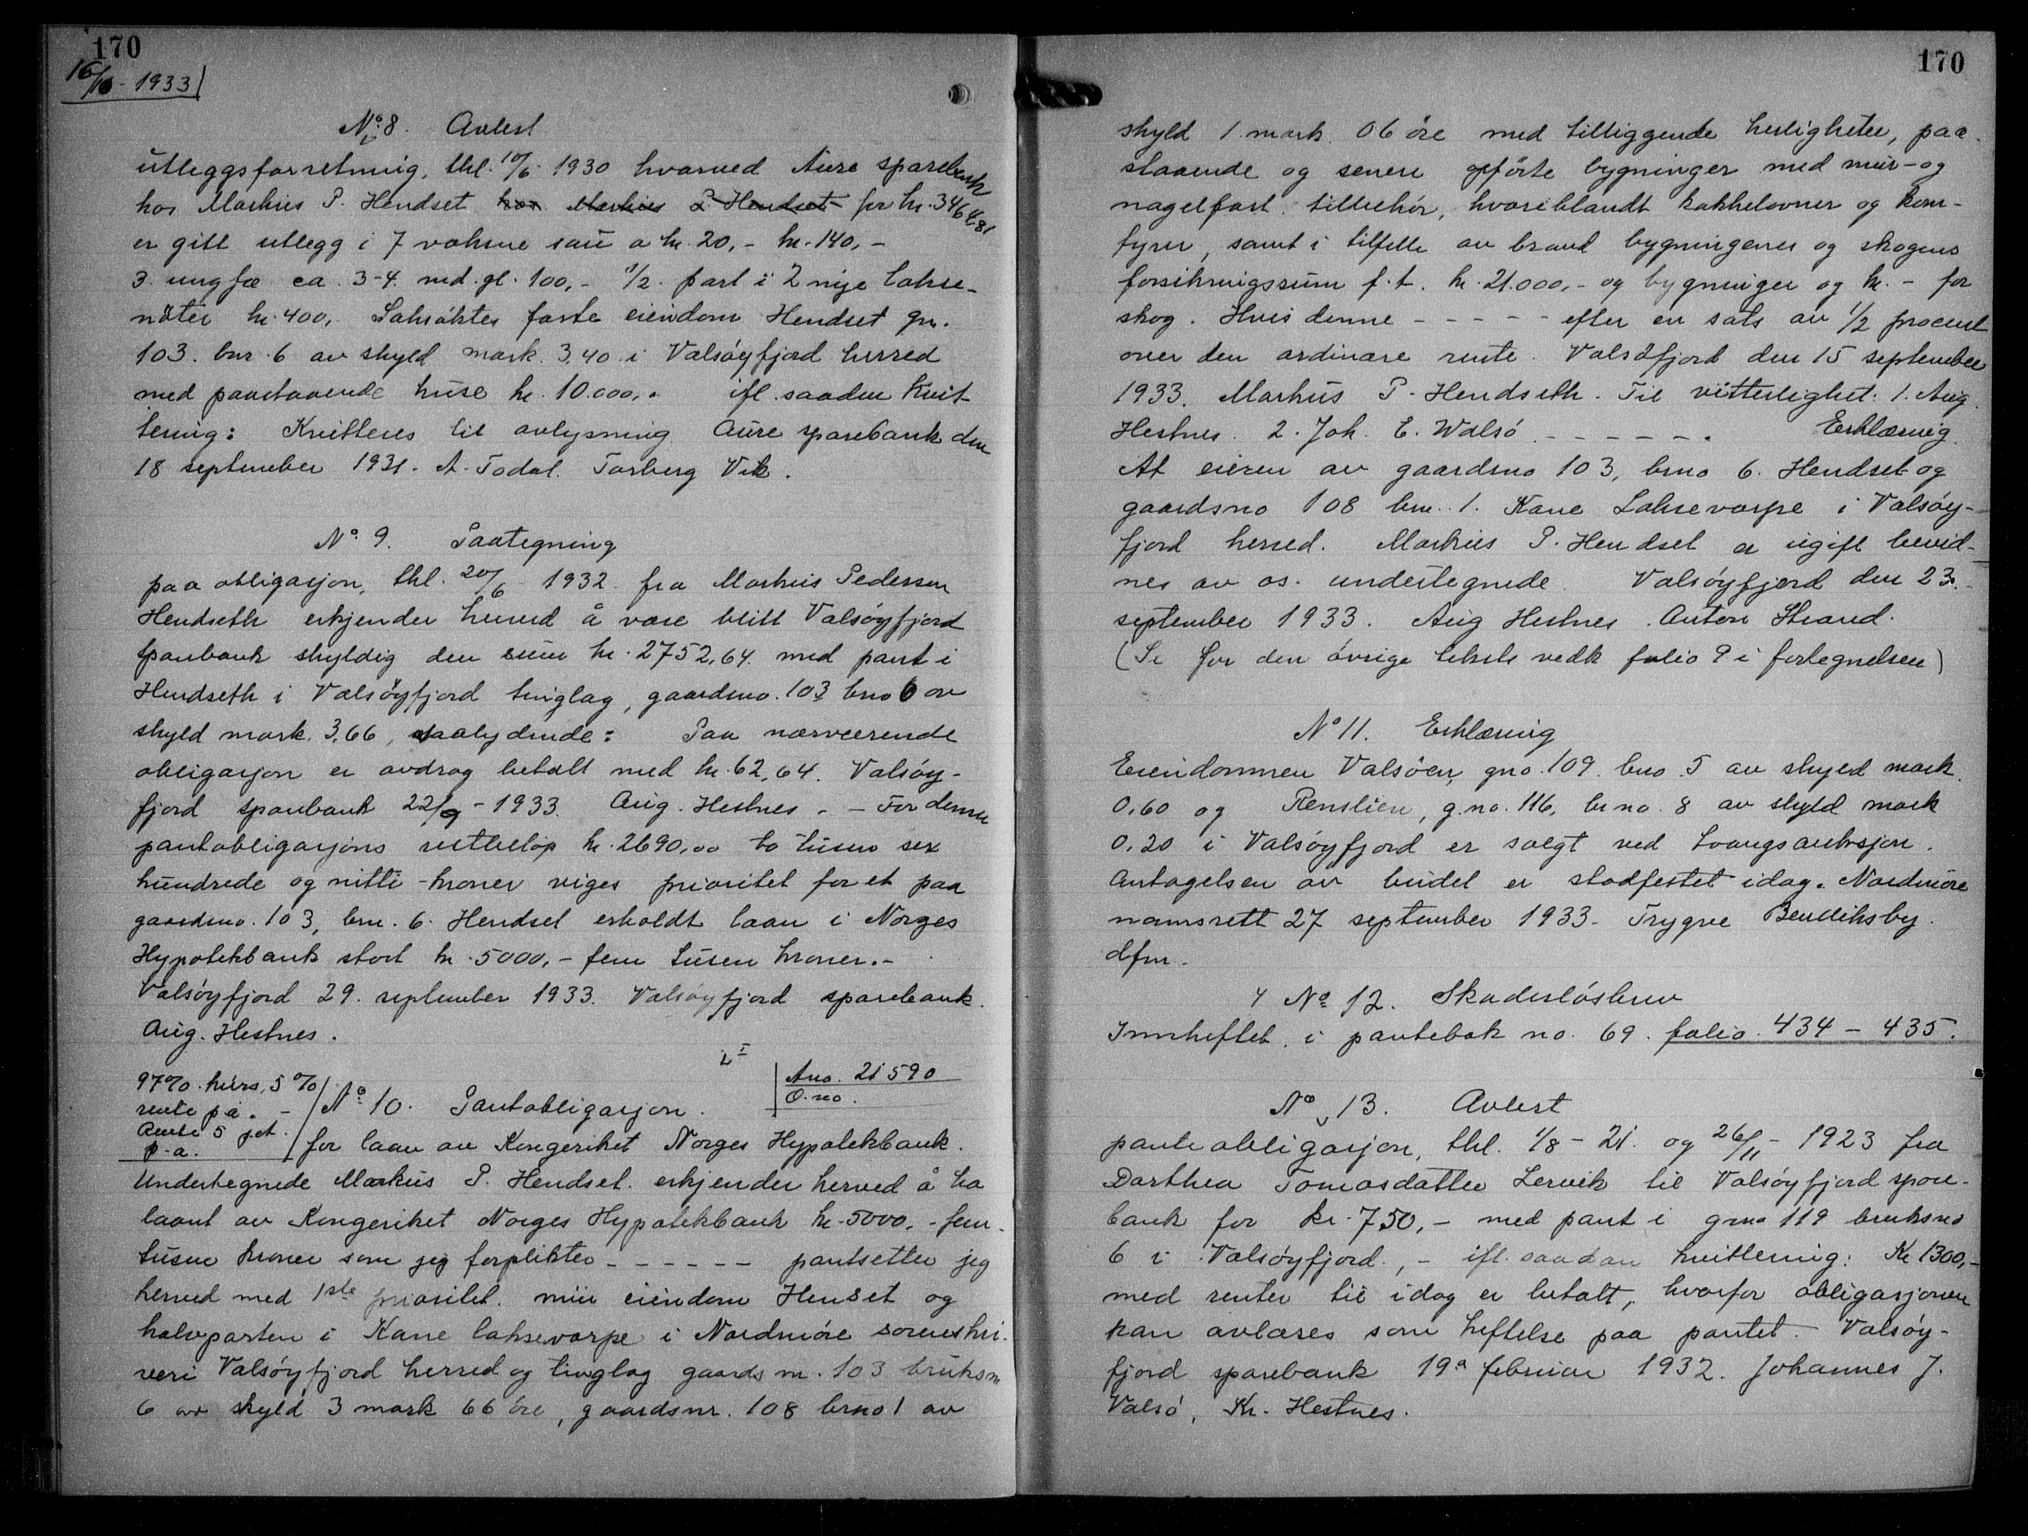 170
16/10 - 1933
No. 8. Avlest
utleggsforretning, thl. 10/6 1930 hvorved Aure sparebank
hos Markus P. Hendset hos Markus P Hendset for kr. 3464,81
er gitt utlegg i 7 voksne sau a kr. 20,- kr. 140,-
3 ungfæ ca. 3-4. md. gl. 100,- 1/2 part i 2 nye lakse-
nøter kr. 400,- Saksøktes faste eiendom Hendset gnr.
103. bnr. 6 av skyld mark 3.40 i Valsøyfjord herred
med paastaaende huse kr. 10.000,- ifl. saaden kvit
tering: Kvitteres til avlysning Aure sparebank den
18 september 1931. A. Todal. Torberg Vik.
No. 9. Paategning
paa obligasjon, thl. 20/6 - 1932 fra Markus Pedersen
Hendseth erkjender herved å være blitt Valsøyfjord
sparebank skyldig den sum kr. 2752,64 med pant i
Hendseth i Valsøyfjord tinglag, gaardsno. 103 bno 6 av
skyld mark. 3,66, saalydende: Paa nærværende
obligasjon er avdrag betalt med kr. 62,64. Valsøy-
fjord sparebank 22/9 - 1933. Aug. Hestnes. - For denne
pantobligasjons restbeløp kr. 2690,00 to tusen sex
hundrede og nitti kroner viges prioritet for et paa
gaardsno. 103, bnr. 6. Hendset erholdt laan i Norges
Hypotekbank stort kr. 5000,- fem tusen kroner.-
Valsøyfjord 29. september 1933. Valsøyfjord sparebank.
Aug. Hestnes.
97% kurs, 5%
rente på. -
Rente 5 pct.
p-a.
Ano. 21590
O. no.
No. 10. Pantobligasjon.
for laan av Kongeriket Norges Hypotekbank.
Undertegnede Markus P. Hendset erkjender herved å ha
laant av Kongeriket Norges Hypotekbank kr. 5000,- fem
tusen kroner som jeg forplikter - - - - - - pantsetter jeg
herved med 1ste prioritet. min eiendom Henset og
halvparten i Kane laksevorpe i Nordmøre sorenskri-
veri Valsøyfjord herred og tinglag gaards nr. 103 bruksnr
6 av skyld 3 mark 66 öre, gaardsnr. 108 brno 1 av
170
skyld 1 mark 06 öre med tilliggende herligheter, paa
staaende og senere opførte bygninger med mur- og
nagelfast tilbehör, hvoriblandt kakkelovner og kom-
fyrer, samt i tilfelle av brand bygningenes og skogens
forsikringssum f. t. kr. 21.000,- og bygninger og kr. - for
skog. Hvis denne - - - - - efter en sats av 1/2 procent
over den ordinære rente. Valsöfjord den 15 september
1933. Markus P. Hendseth. Til vitterlighet: 1. Aug.
Hestnes. 2. Joh. E. Walsö - - - - - -. Erklæring.
At eieren av gaardsno 103, brno 6. Hendset og
gaardsno 108 bnr. 1. Kane Laksevorpe i Valsøy-
fjord herred. Markus P. Hendset er ugift bevid-
nes av os undertegnede. Valsøyfjord den 23.
september 1933. Aug Hestnes. Anton Strand.
(Se for den øvrige tekst vedk folio 9 i fortegnelsen)
No 11. Erklæring
Eiendommen Valsöen, gno. 109. bno. 5 av skyld mark
0,60 og Renslien, g.no. 116, br no. 8 av skyld mark
0,20 i Valsøyfjord er solgt ved tvangsauksjon.
Antagelsen av budet er stadfestet idag. Nordmöre
namsrett 27 september 1933. Trygve Bendiksby.
dfm.
No. 12. Skadesløsbrev
Innheftet i pantebok no. 69. folio 434 - 435.
No. 13. Avlest
panteobligasjon, thl. 1/8 - 21. og 26/11 - 1923 fra
Dorthea Tomasdatter Lervik til Valsøyfjord spare-
bank for kr. 750,- med pant i gno 119 bruksno
6 i Valsøyfjord, - ifl. saadan kvittering: Kr 1300,-
med renter til idag er betalt, hvorfor obligasjonen
kan avlæses som heftelse paa pantet. Valsøy-
fjord sparebank 19. februar 1932. Johannes J.
Valsö, Kr. Hestnes.